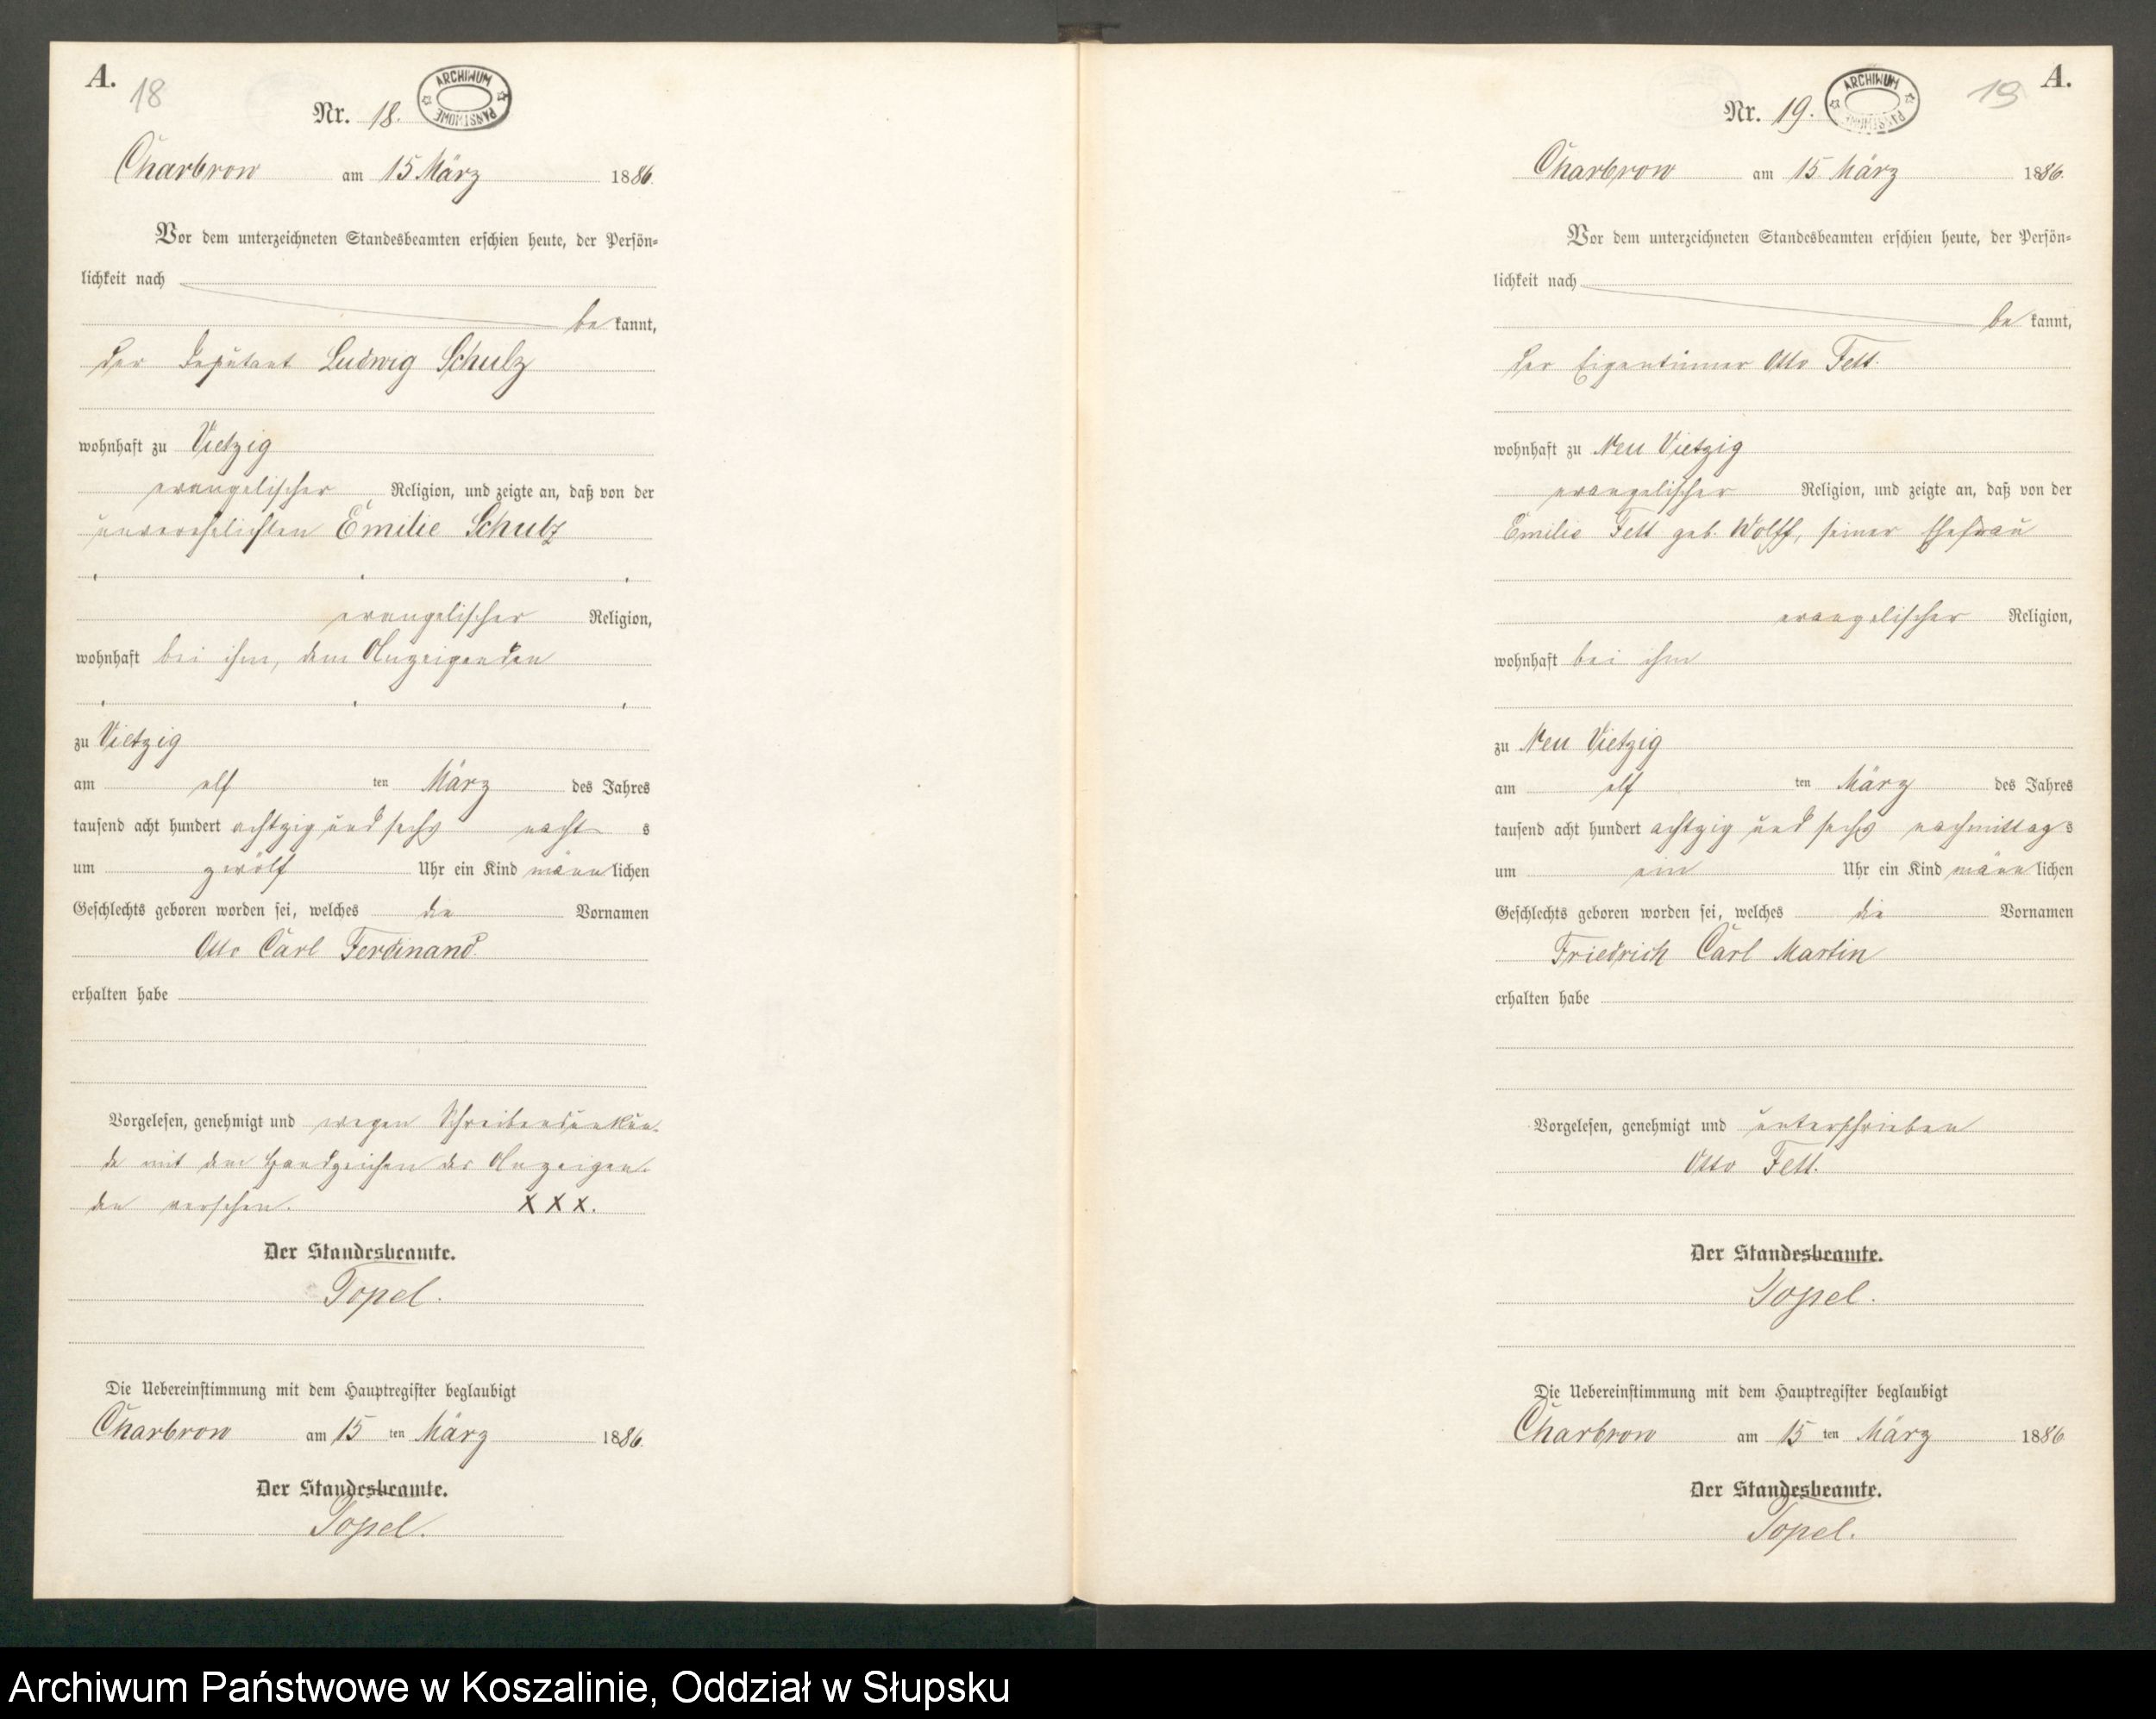 A.
18
Nr. 18.
ARCHIWUM PAŃSTWOWE
Charbrow am 15 März 1886.
Vor dem unterzeichneten Standesbeamten erschien heute, der Persön-
lichkeit nach
be kannt,
der Deputant Ludwig Schulz
wohnhaft zu Vietzig
evangelischer Religion, und zeigte an, daß von der
unverehelichten Emilie Schulz
evangelischer Religion,
wohnhaft bei ihm, dem Anzeigenden
zu Vietzig
am elf ten März des Jahres
tausend acht hundert achtzig und sechs nacht s
um zwölf Uhr ein Kind männ lichen
Geschlechts geboren worden sei, welches die Vornamen
Otto Carl Ferdinand
erhalten habe
Vorgelesen, genehmigt und wegen Schreibensunkun-
de mit dem Handzeichen des Anzeigen-
den versehen. XXX.
Der Standesbeamte.
Topel.
Die Uebereinstimmung mit dem Hauptregister beglaubigt
Charbrow am 15 ten März 1886.
Der Standesbeamte.
Topel.
A.
19
Nr. 19.
ARCHIWUM PAŃSTWOWE
Charbrow am 15 März 1886.
Vor dem unterzeichneten Standesbeamten erschien heute, der Persön-
lichkeit nach
be kannt,
der Eigentümer Otto Fett.
wohnhaft zu Neu Vietzig
evangelischer Religion, und zeigte an, daß von der
Emilie Fett geb. Wolff, seiner Ehefrau
evangelischer Religion,
wohnhaft bei ihm
zu Neu Vietzig
am elf ten März des Jahres
tausend acht hundert achtzig und sechs nachmittag s
um ein Uhr ein Kind männ lichen
Geschlechts geboren worden sei, welches die Vornamen
Friedrich Carl Martin
erhalten habe
Vorgelesen, genehmigt und unterschrieben
Otto Fett.
Der Standesbeamte.
Topel.
Die Uebereinstimmung mit dem Hauptregister beglaubigt
Charbrow am 15 ten März 1886
Der Standesbeamte.
Topel.
Archiwum Państwowe w Koszalinie, Oddział w Słupsku